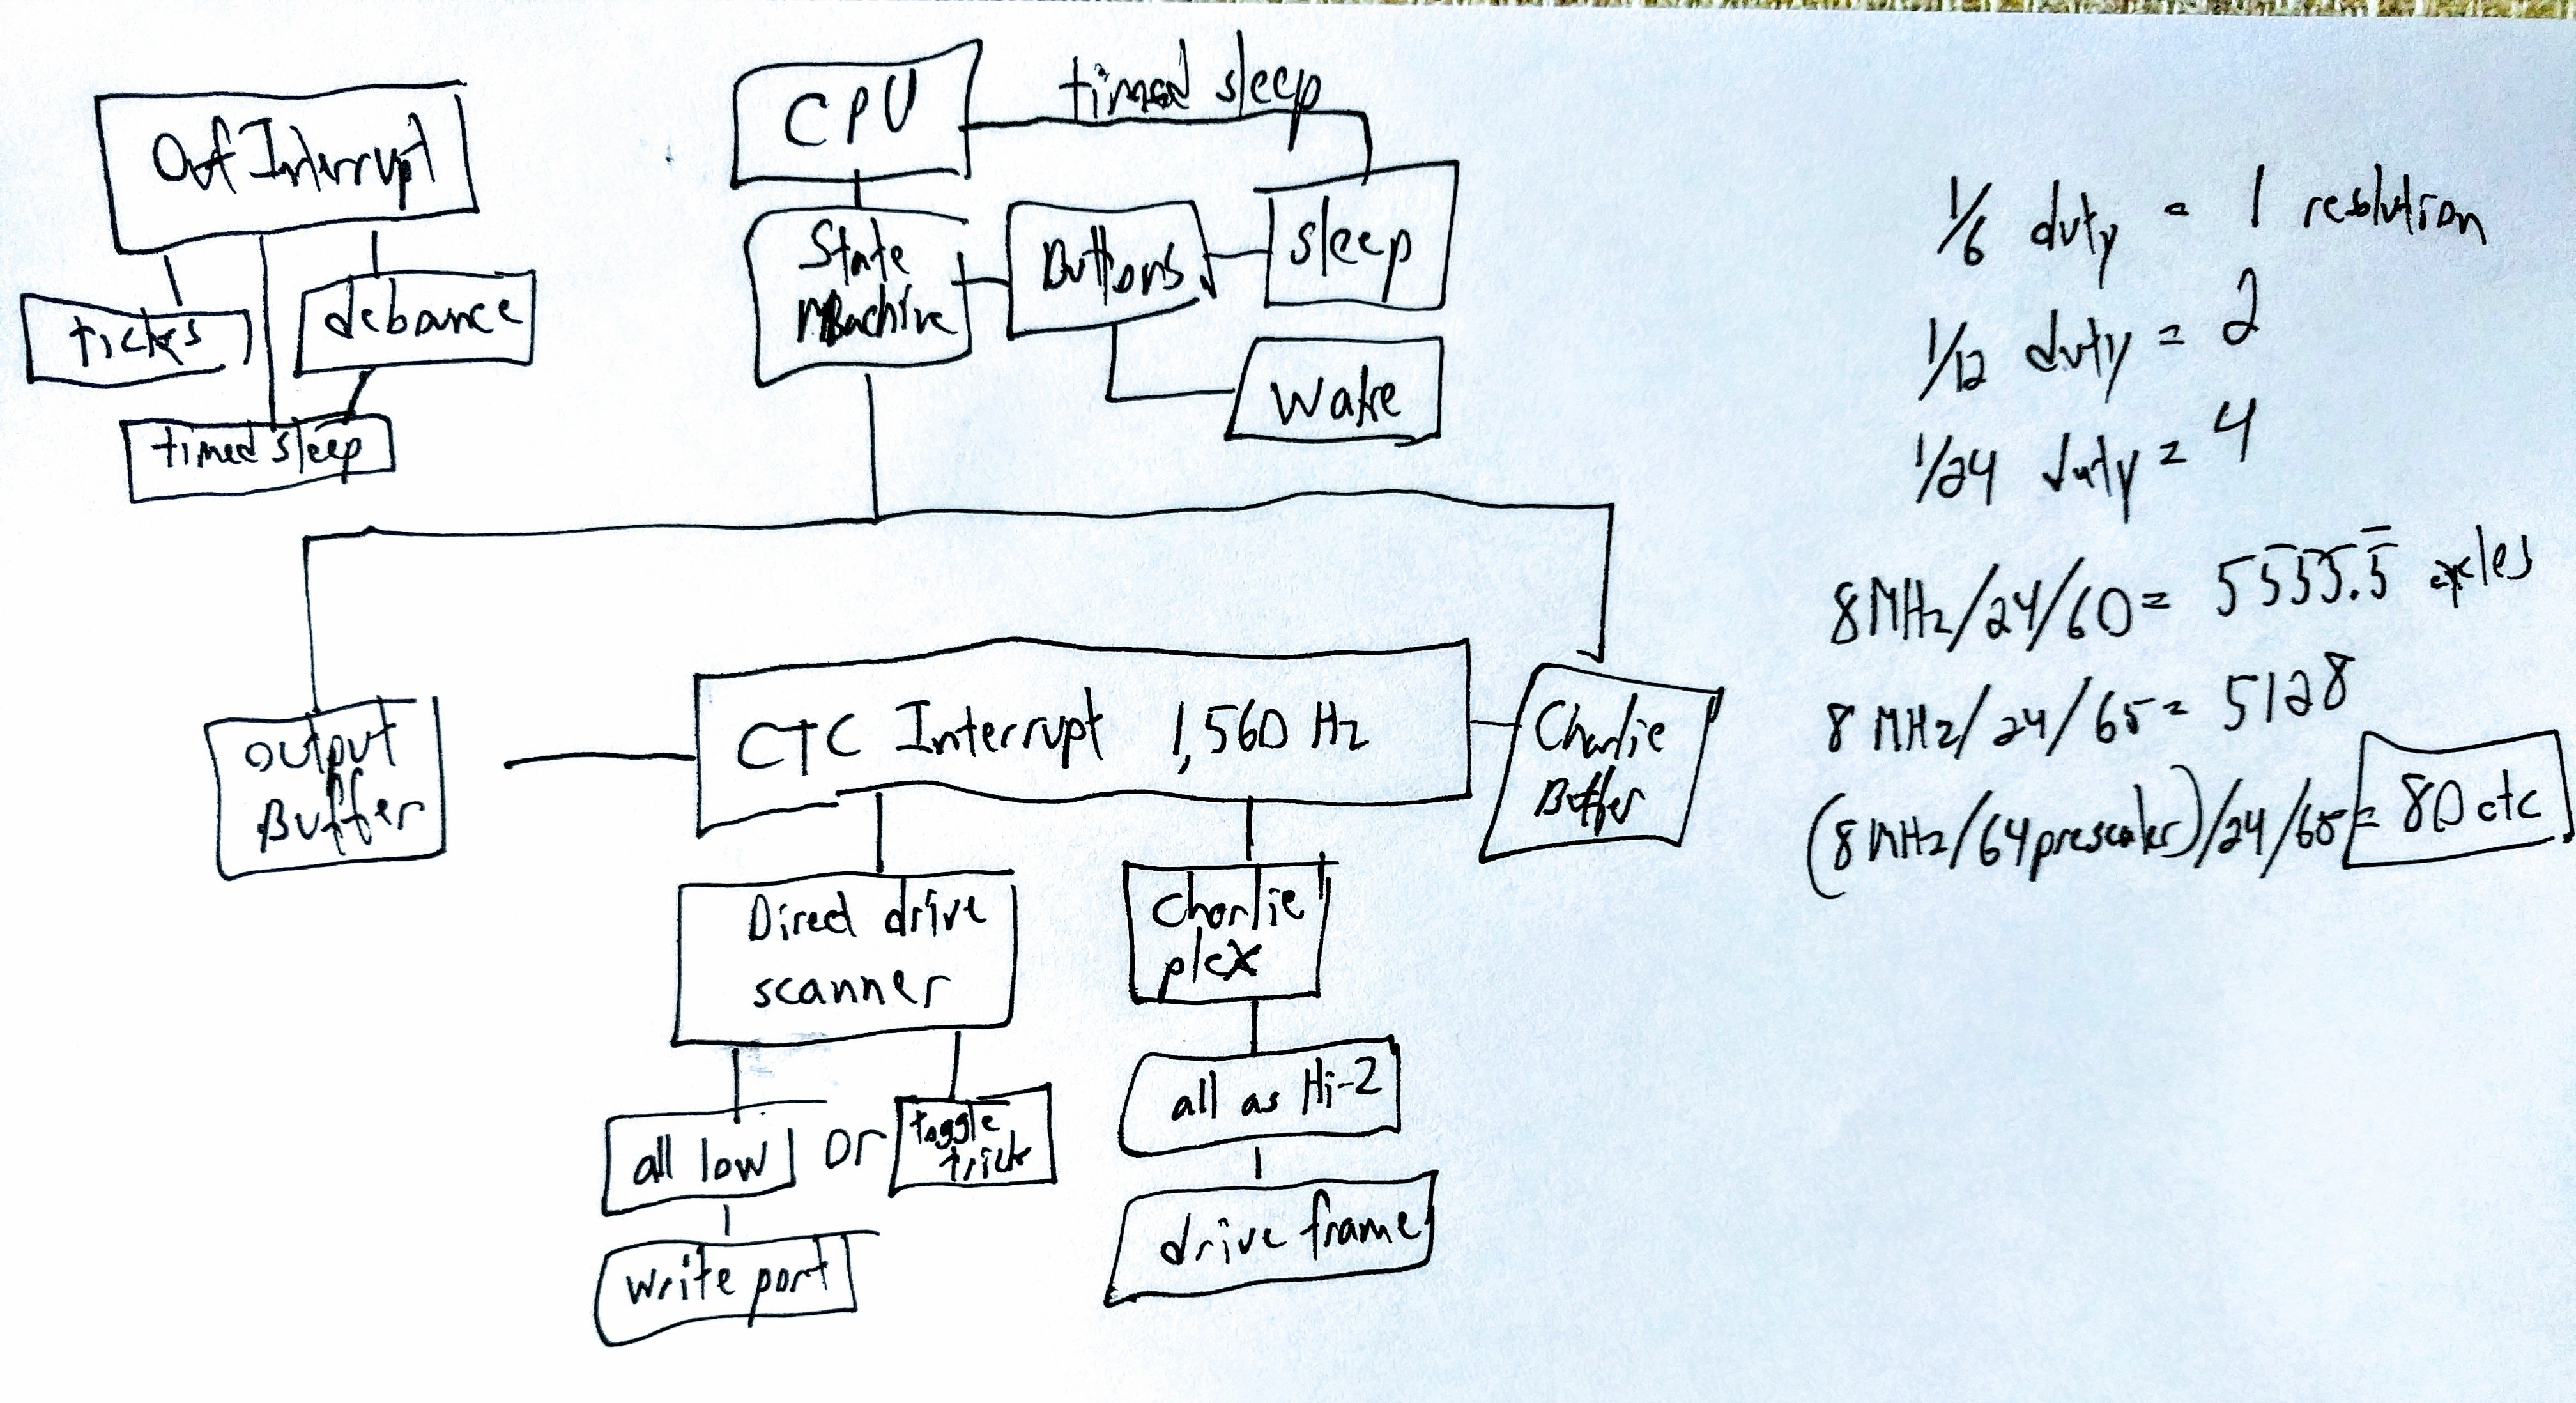 Ovf Interrupt
ticks
debounce
timed sleep
CPU
timed sleep
State
Machine
Buttons
sleep
Wake
output
Buffer
CTC Interrupt 1,560 Hz
Charlie
Buffer
Direct drive
scanner
all low
or
toggle
trick
write port
Charlie
plex
all as Hi-Z
drive frame
1/6 duty = 1 resolution
1/12 duty = 2
1/24 duty = 4
8MHz/24/60= 5555.5̅ cycles
8 MHz/24/65= 5128
(8 MHz/64 prescaler)/24/65= 80 ctc